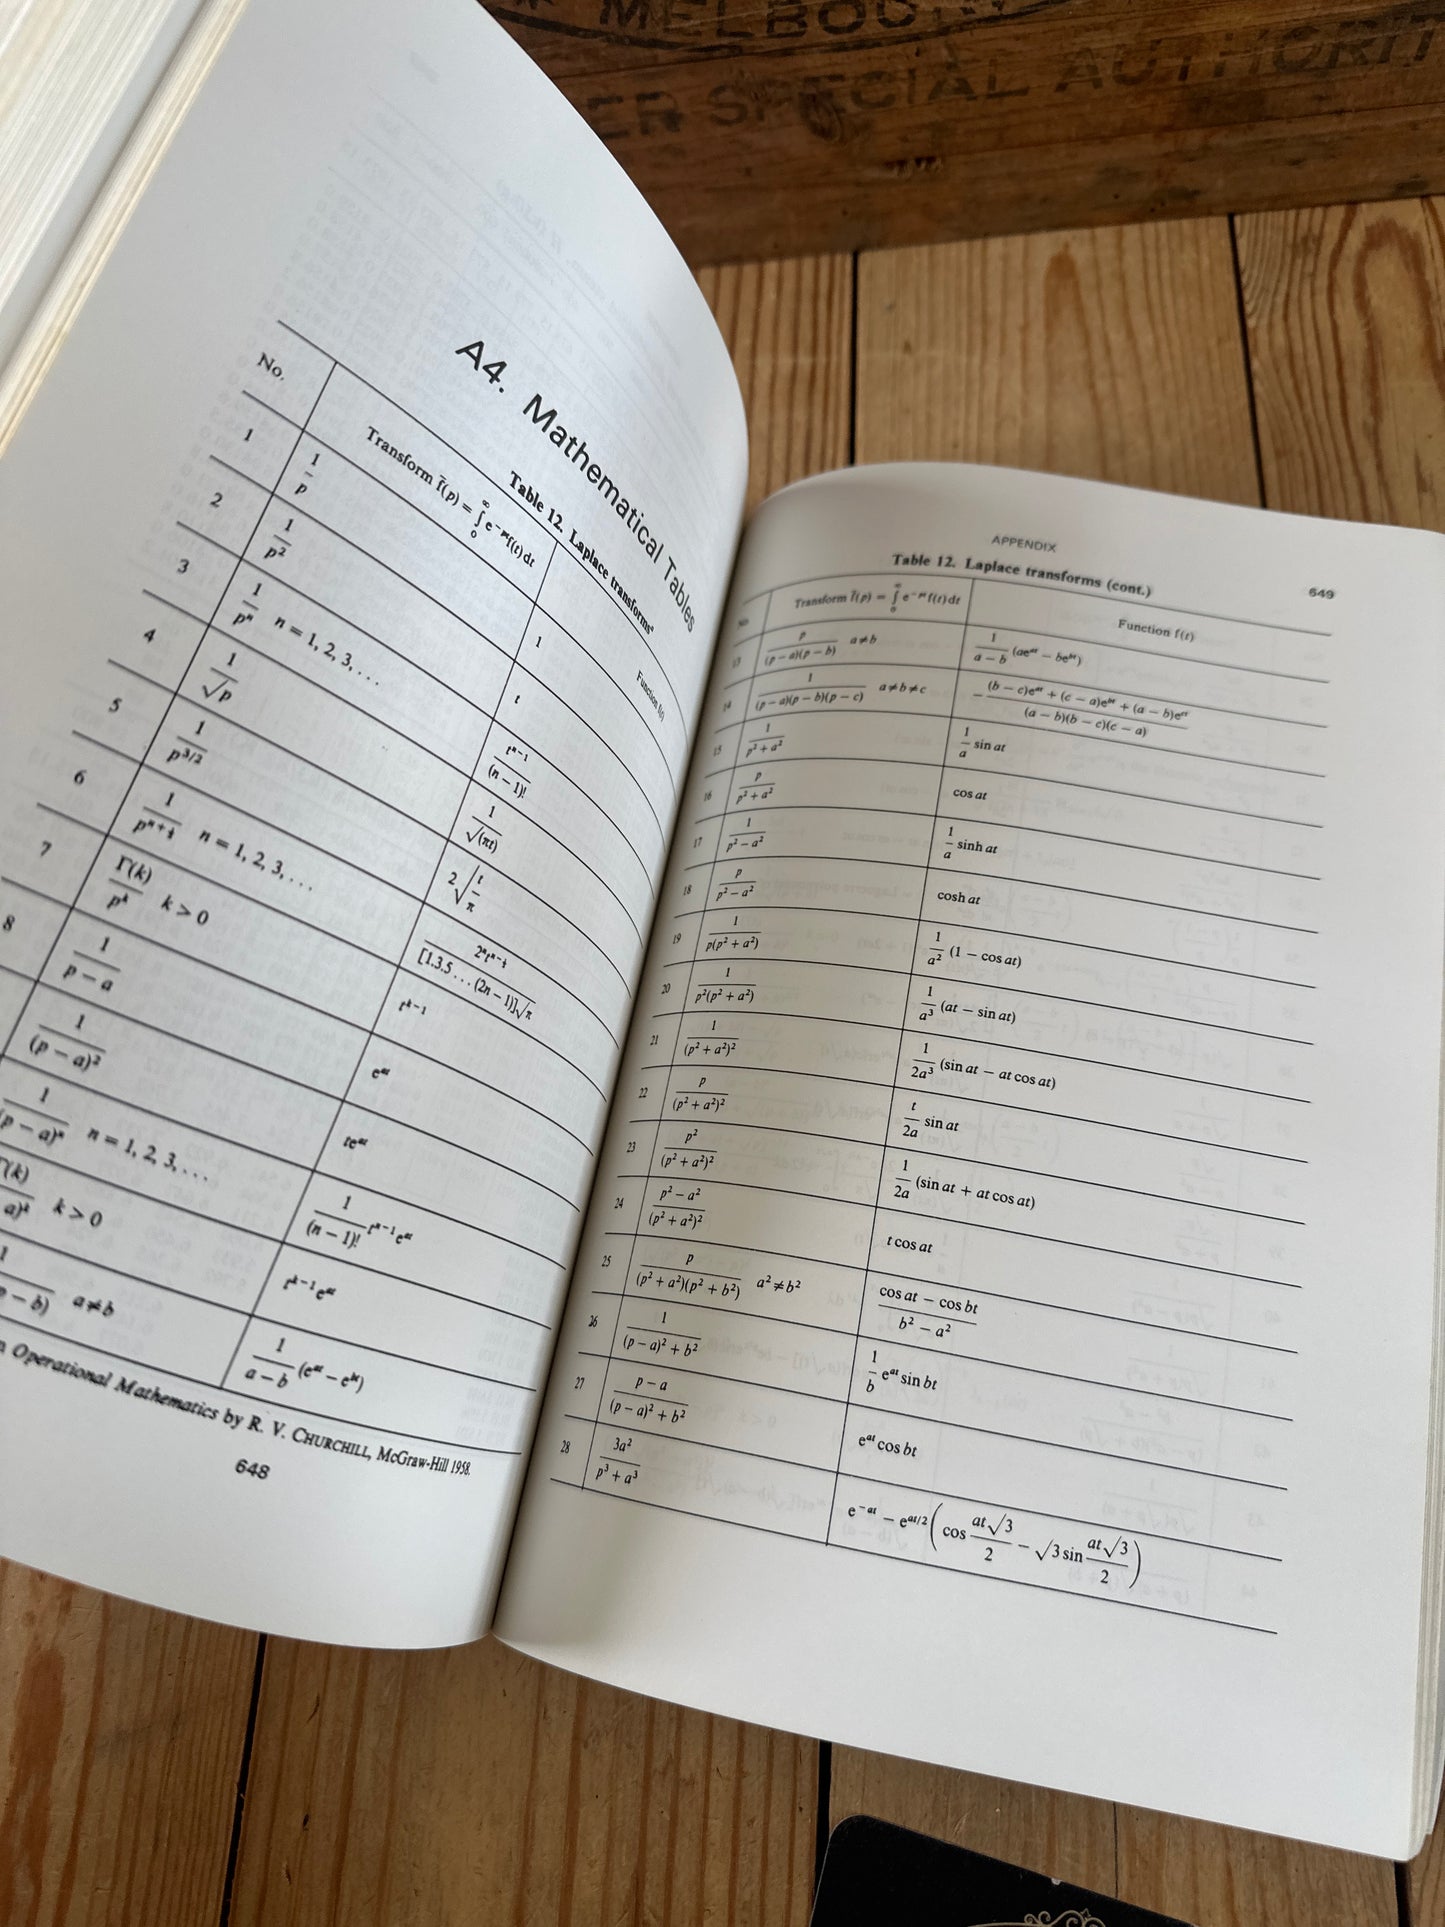 MELBOU
ER SPECIAL AUTHORIT
A4. Mathematical Tables
Table 12. Laplace transforms*
No. Transform f̄(p) = ∫₀^∞ e^(−pt) f(t) dt Function f(t)
1 1/p 1
2 1/p² t
3 1/pⁿ n = 1, 2, 3, . . . t^(n−1)/(n − 1)!
4 1/√p 1/√(πt)
5 1/p^(3/2) 2√(t/π)
6 1/p^(n+½) n = 1, 2, 3, . . . 2ⁿt^(n−½)/([1.3.5 . . . (2n − 1)]√π)
7 Γ(k)/p^k k > 0 t^(k−1)
8 1/(p − a) e^(at)
1/(p − a)² te^(at)
1/(p − a)ⁿ n = 1, 2, 3, . . . 1/(n − 1)! t^(n−1) e^(at)
Γ(k)/a)^k k > 0 t^(k−1) e^(at)
1/p − b) a≠b 1/(a − b) (e^(at) − e^(bt))
Operational Mathematics by R. V. CHURCHILL, McGraw-Hill 1958.
648
APPENDIX 649
Table 12. Laplace transforms (cont.)
No. Transform f̄(p) = ∫₀^∞ e^(−pt) f(t) dt Function f(t)
13 p/((p − a)(p − b)) a≠b 1/(a − b) (ae^(at) − be^(bt))
14 1/((p − a)(p − b)(p − c)) a≠b≠c −((b − c)e^(at) + (c − a)e^(bt) + (a − b)e^(ct))/((a − b)(b − c)(c − a))
15 1/(p² + a²) 1/a sin at
16 p/(p² + a²) cos at
17 1/(p² − a²) 1/a sinh at
18 p/(p² − a²) cosh at
19 1/(p(p² + a²)) 1/a² (1 − cos at)
20 1/(p²(p² + a²)) 1/a³ (at − sin at)
21 1/(p² + a²)² 1/2a³ (sin at − at cos at)
22 p/(p² + a²)² t/2a sin at
23 p²/(p² + a²)² 1/2a (sin at + at cos at)
24 (p² − a²)/(p² + a²)² t cos at
25 p/((p² + a²)(p² + b²)) a²≠b² (cos at − cos bt)/(b² − a²)
26 1/((p − a)² + b²) 1/b e^(at) sin bt
27 (p − a)/((p − a)² + b²) e^(at) cos bt
28 3a²/(p³ + a³) e^(−at) − e^(at/2) (cos at√3/2 − √3 sin at√3/2)